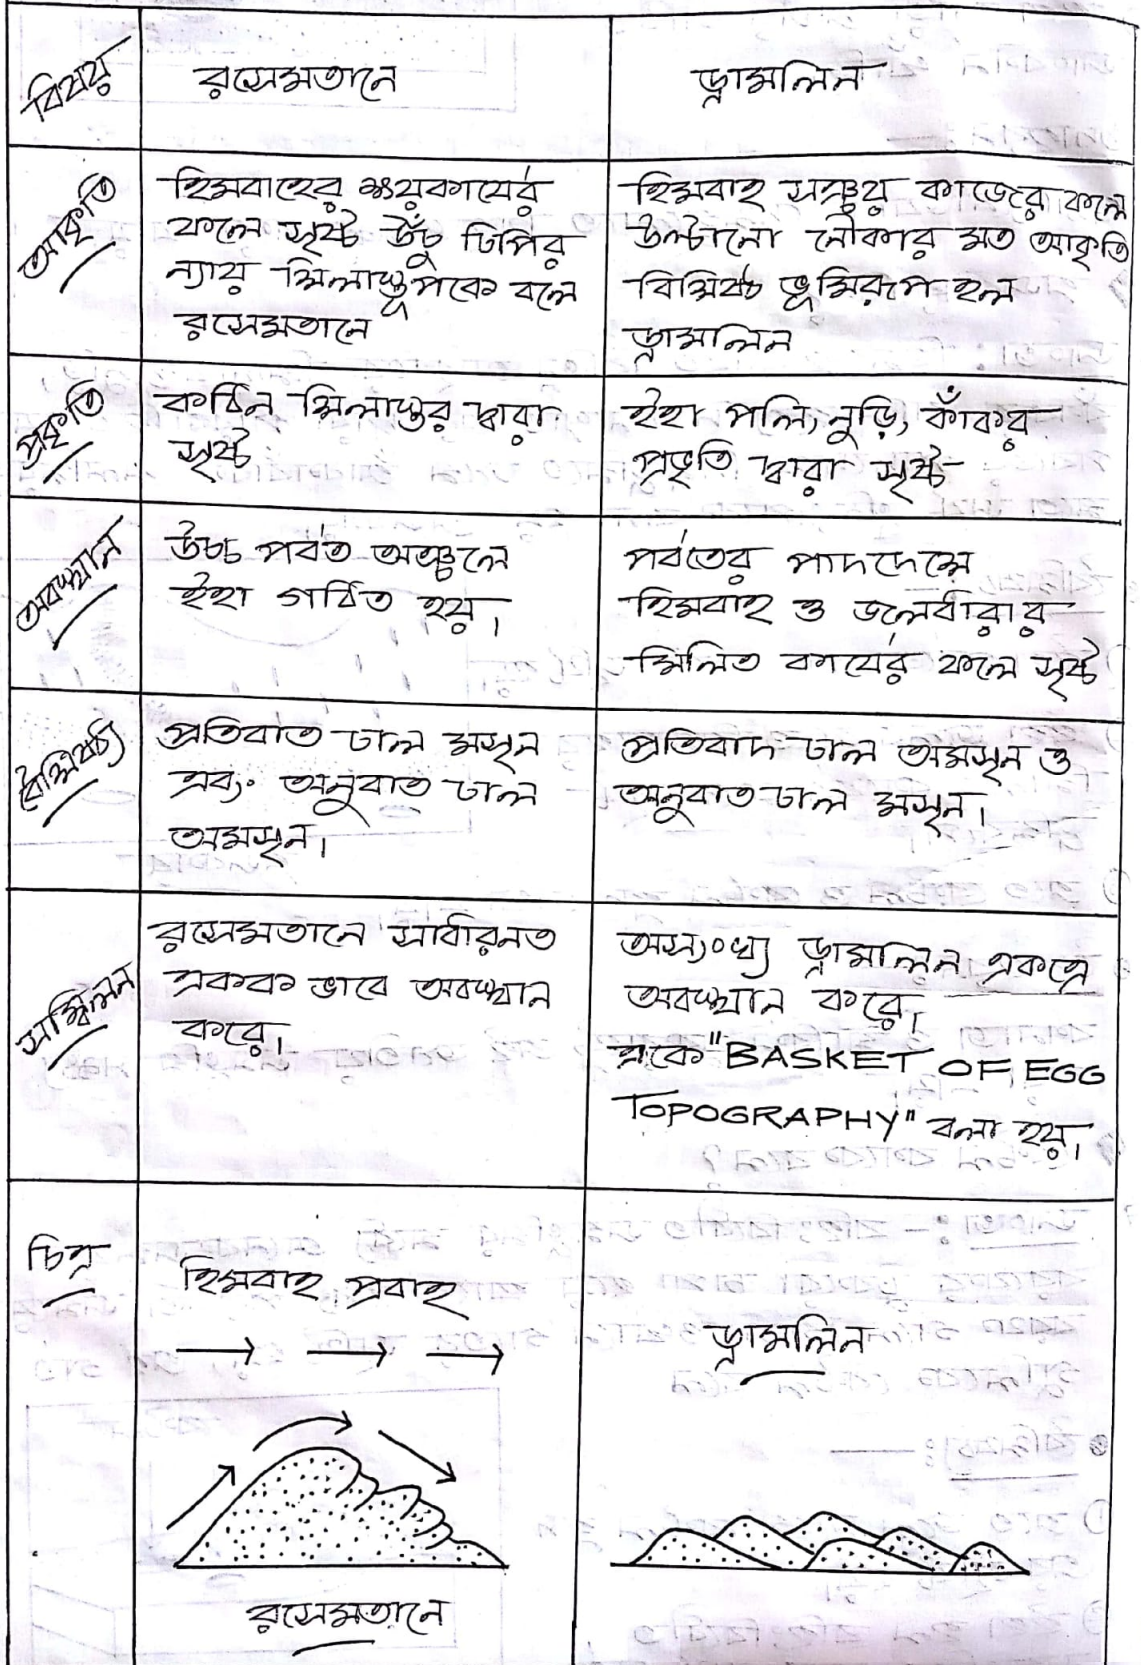 বিষয়
রসেমতানে
ড্রামলিন
আকৃতি
হিমবাহের ক্ষয়কার্যের
ফলে সৃষ্ট উঁচু ঢিপির
ন্যায় শিলাস্তূপকে বলে
রসেমতানে
হিমবাহ সঞ্চয় কাজের ফলে
উল্টানো নৌকার মত আকৃতি
বিশিষ্ট ভূমিরূপ হল
ড্রামলিন
প্রকৃতি
কঠিন শিলাস্তর দ্বারা
সৃষ্ট
ইহা পলি, নুড়ি, কাঁকর
প্রভৃতি দ্বারা সৃষ্ট
অবস্থান
উচ্চ পর্বত অঞ্চলে
ইহা গঠিত হয়।
পর্বতের পাদদেশে
হিমবাহ ও জলধারার
মিলিত কার্যের ফলে সৃষ্ট
বৈশিষ্ট্য
প্রতিবাত ঢাল মসৃন
এবং অনুবাত ঢাল
অমসৃন।
প্রতিবাদ ঢাল অমসৃন ও
অনুবাত ঢাল মসৃন।
সম্মিলন
রসেমতানে সাধারনত
একক ভাবে অবস্থান
করে।
অসংখ্য ড্রামলিন একত্রে
অবস্থান করে।
একে "BASKET OF EGG
TOPOGRAPHY" বলা হয়।
চিত্র
হিমবাহ প্রবাহ
রসেমতানে
ড্রামলিন